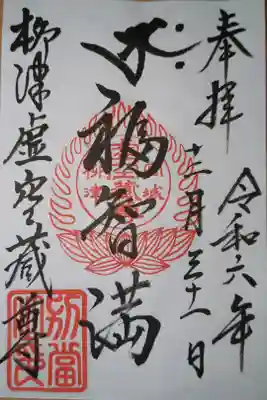 奉拝
令和六年
十二月三十一日
福智満
柳津虚空蔵尊
別當